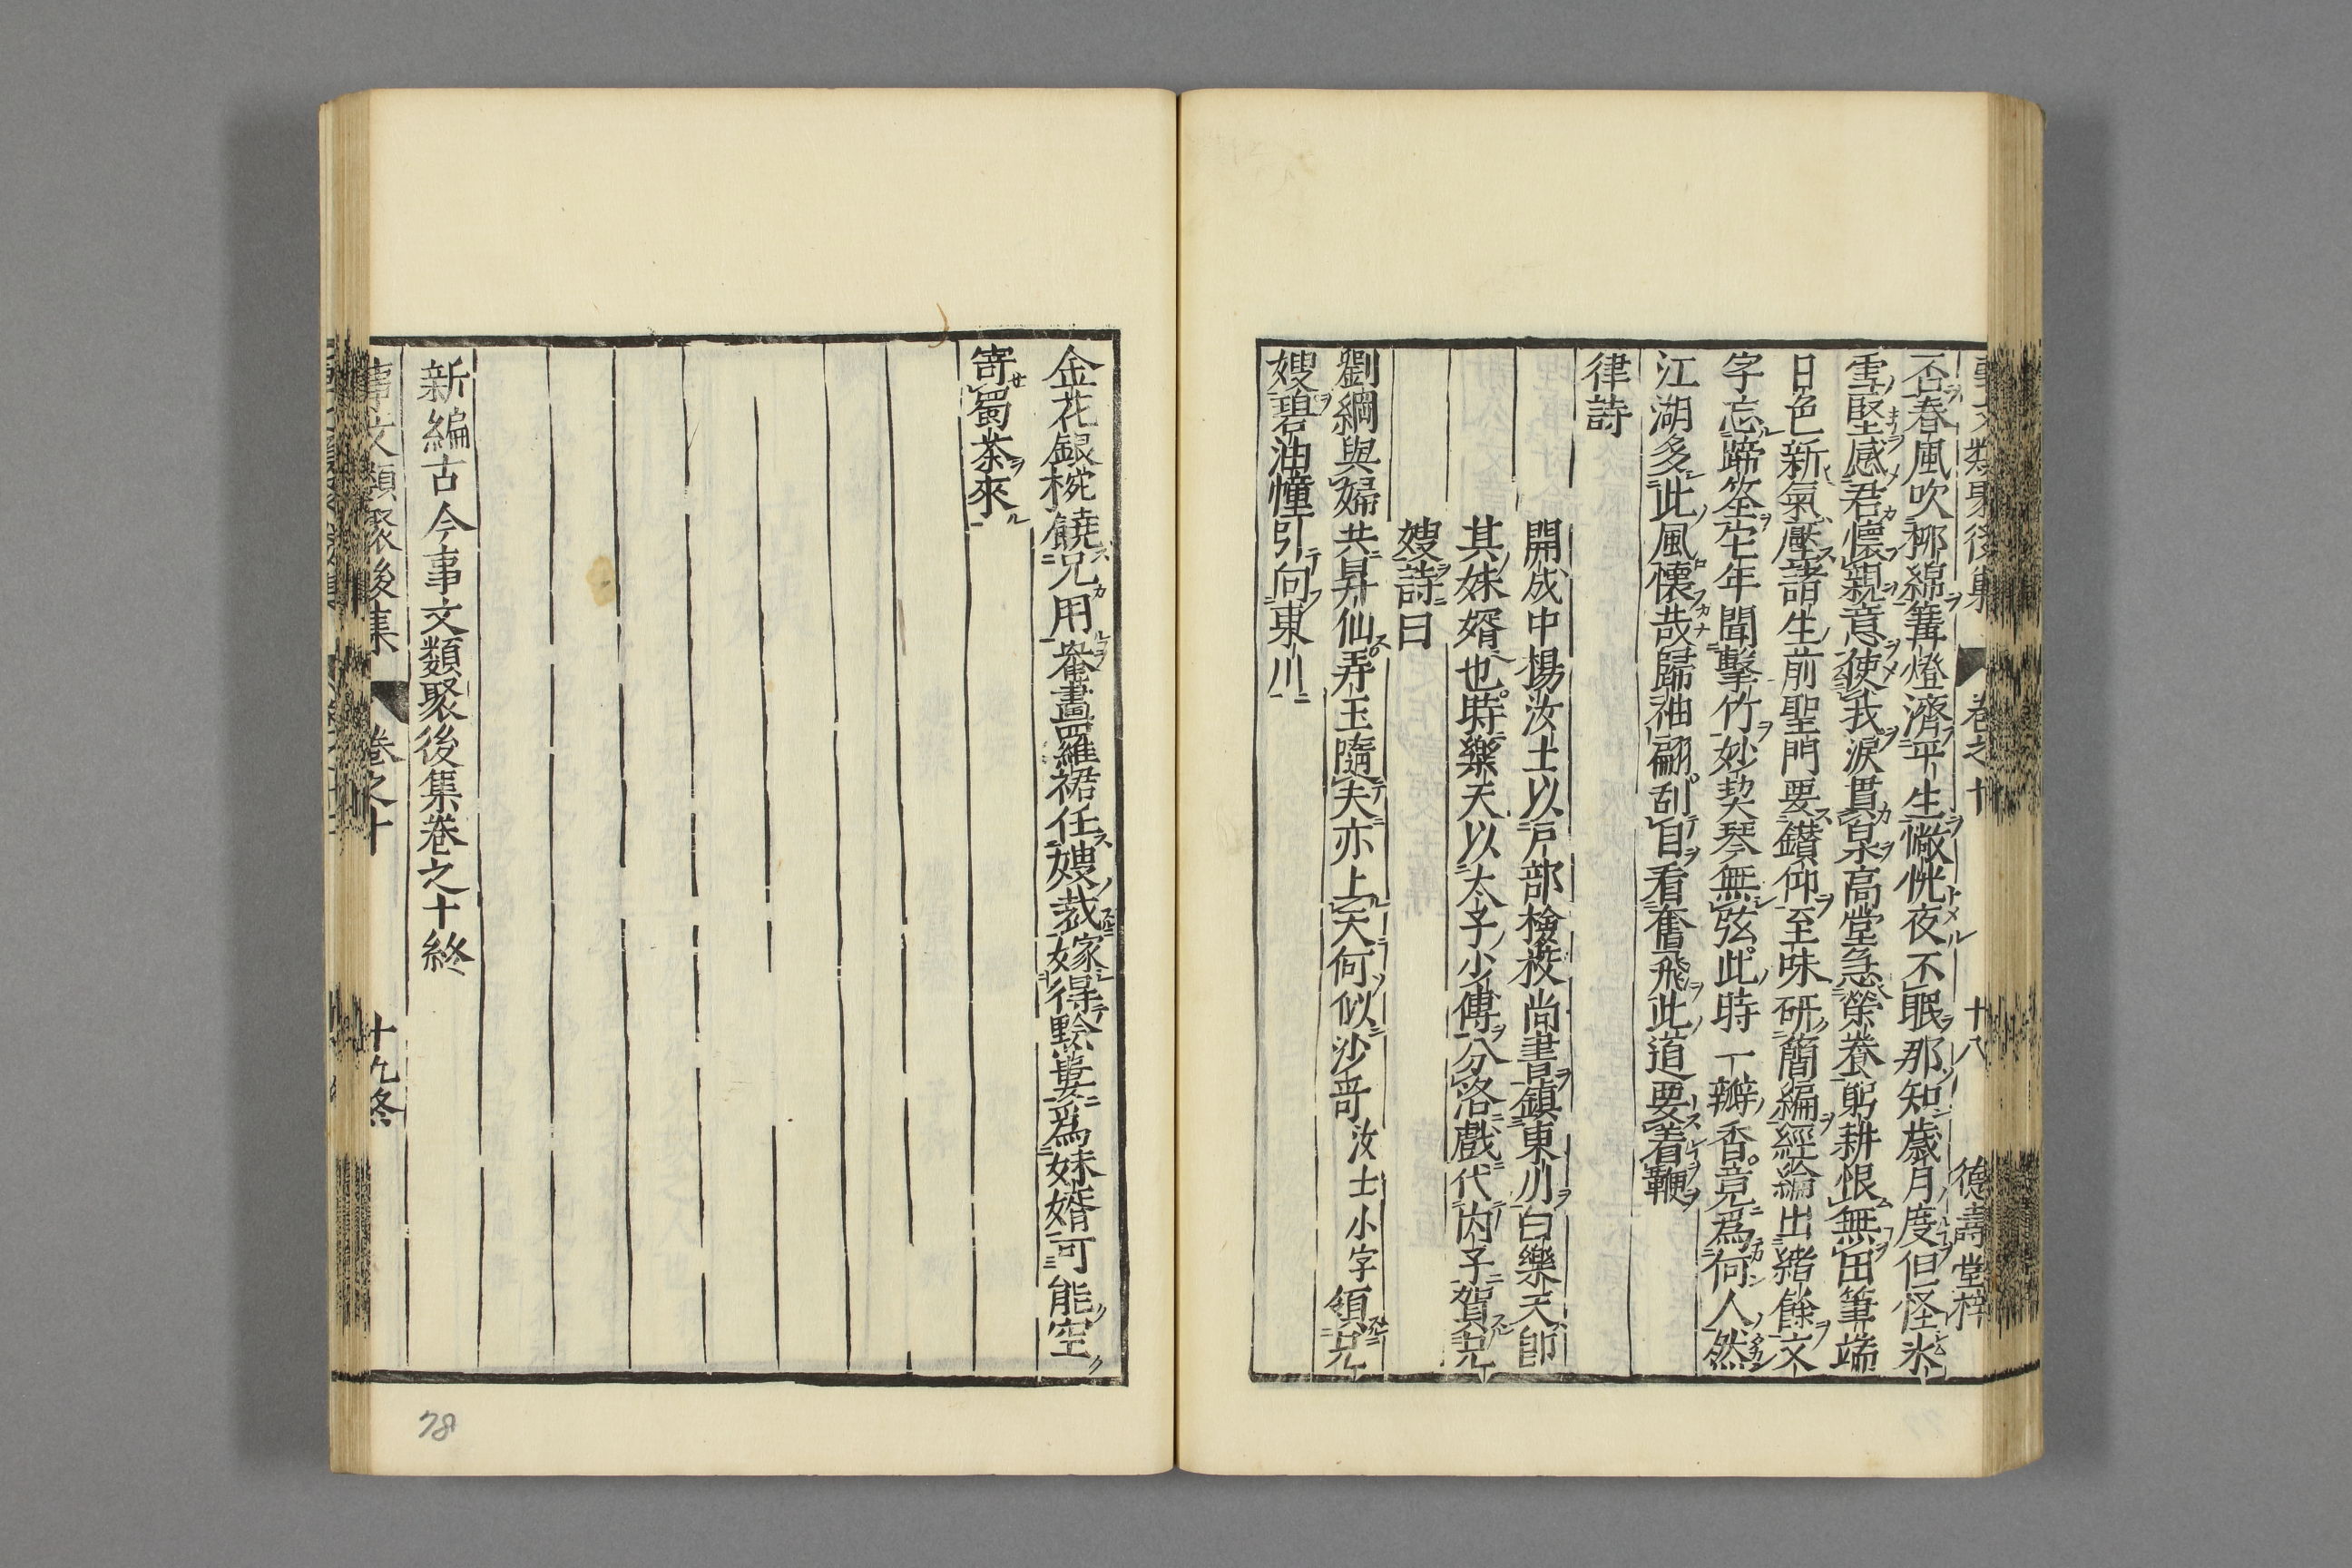 事文類聚後集 卷之十 十八 德壽堂梓
否春風吹柳綿篝燈濟平生懒恍夜不眠那知歲月度但怪氷
雪堅感君懷親意使我淚貫泉高堂急榮養躬耕恨無田筆端
日色新氣壓諸生前聖門要鑚仰至味研簡編經綸出緒餘文
字忘蹄筌它年聞擊竹妙契琴無弦此時一瓣香竟爲何人然
江湖多此風懷哉歸袖翩刮目看奮飛此道要着鞭
律詩
開成中楊汝士以戸部檢挍尚書鎮東川白樂天即
其妹婿也時樂天以太子少傅分洛戲代内子賀兄
嫂詩曰
劉綱與婦共昇仙弄玉隨夫亦上天何似沙哥汝士小字領兄
嫂碧油幢引向東川
金花銀椀饒兄用罨畫羅裙任嫂裁嫁得黔婁爲妹婿可能空
寄蜀茶來
新編古今事文類聚後集卷之十終
事文類聚後集 卷之十 十九終
78